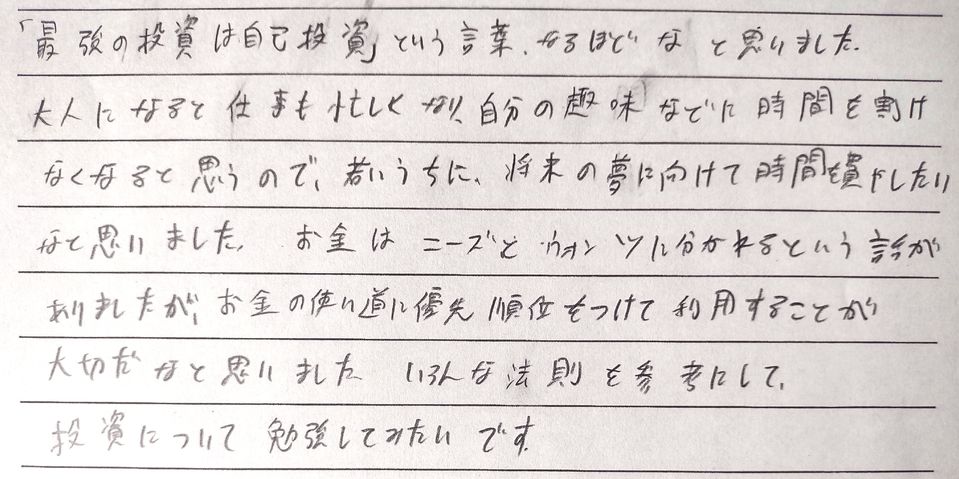 「最強の投資は自己投資」という言葉、なるほどなと思いました。
大人になると仕事も忙しくなり、自分の趣味などに時間を割け
なくなると思うので、若いうちに、将来の夢に向けて時間を費やしたい
なと思いました。お金はニーズとウォンツに分かれるという話が
ありましたが、お金の使い道に優先順位をつけて利用することが
大切だなと思いました。いろんな法則を参考にして、
投資について勉強してみたいです。